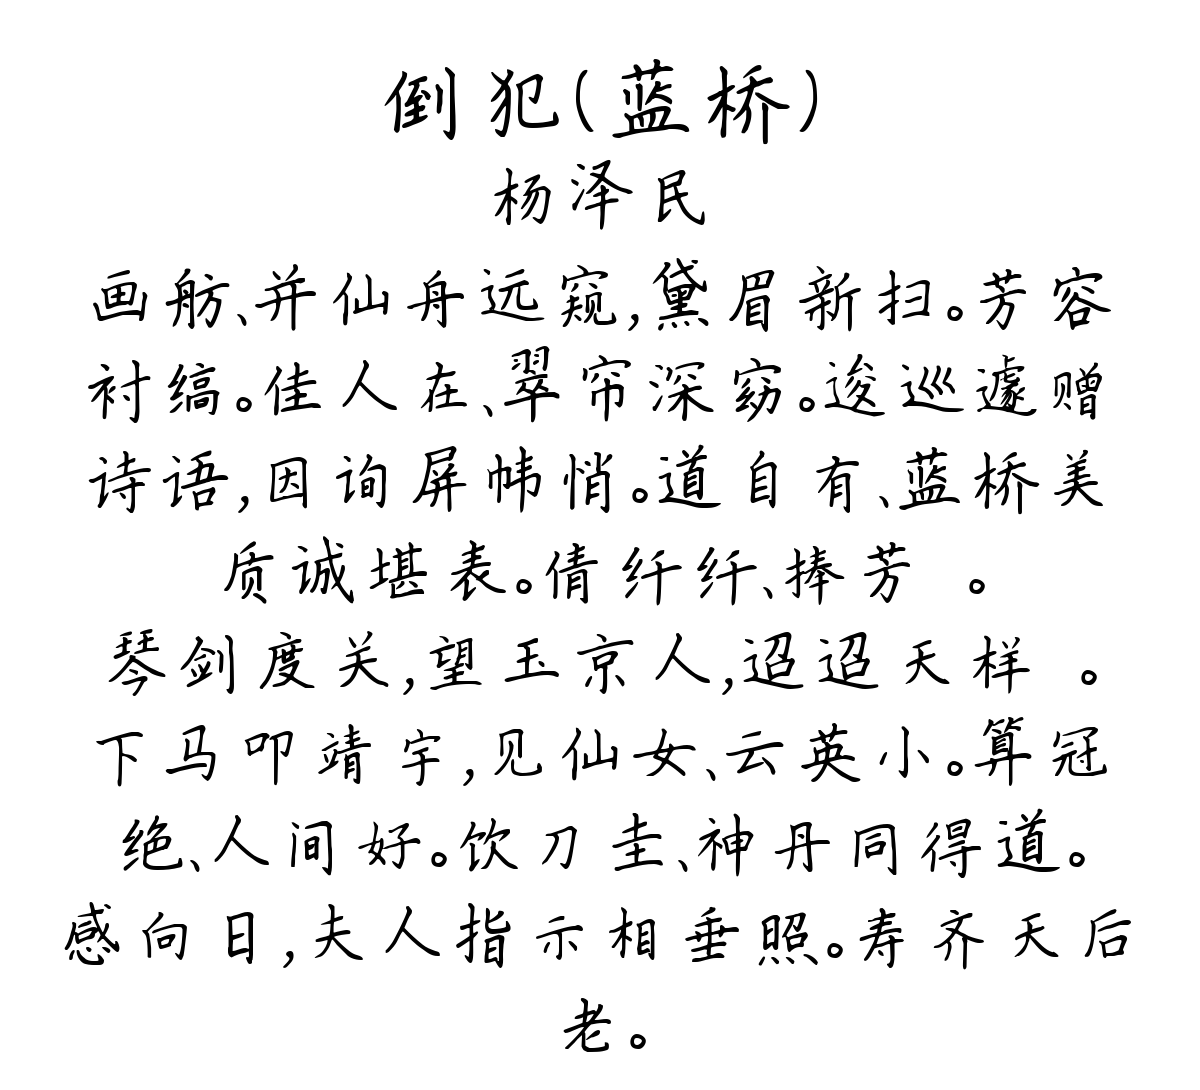 倒犯(蓝桥)
杨泽民
画舫、并仙舟远窥,黛眉新扫。芳容
衬缟。佳人在、翠帘深窈。逡巡遽赠
诗语,因询屏帏悄。道自有、蓝桥美
质诚堪表。倩纤纤、捧芳 。
琴剑度关,望玉京人,迢迢天样 。
下马叩靖宇,见仙女、云英小。算冠
绝、人间好。饮刀圭、神丹同得道。
感向日,夫人指示相垂照。寿齐天后
老。